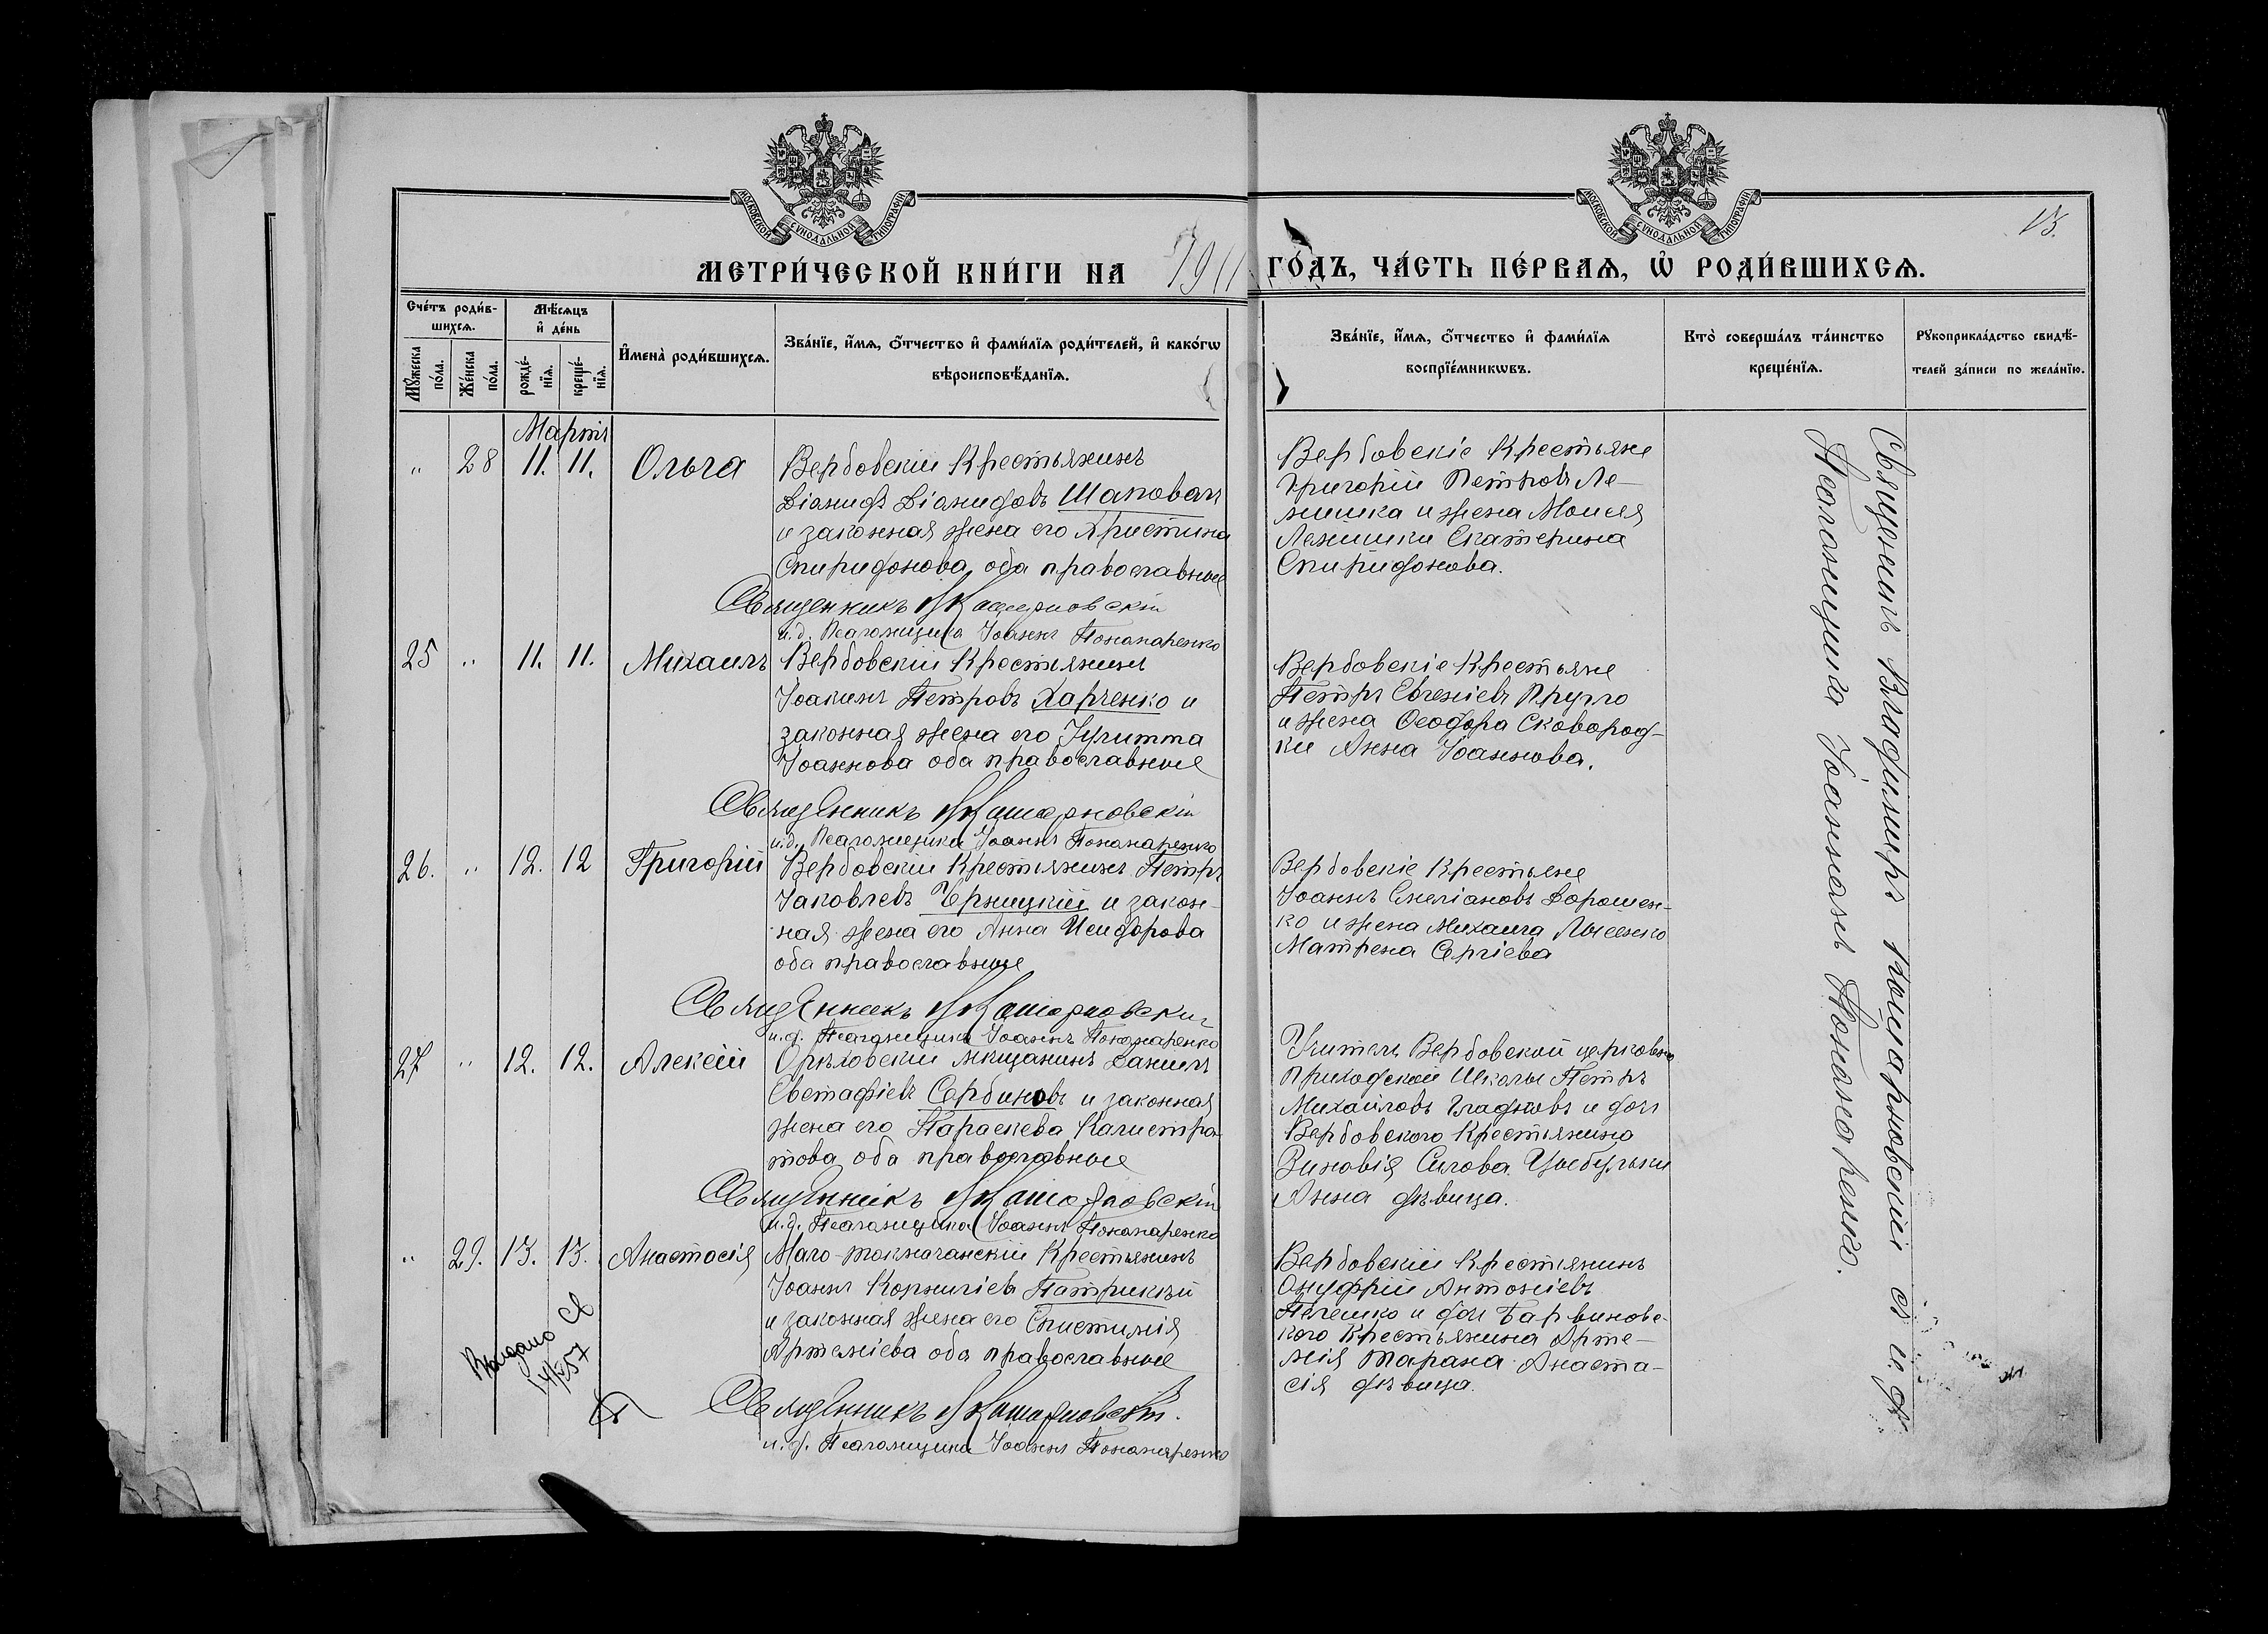 МОСКОВСКОЙ СѴНОДАЛЬНОЙ ТИПОГРАФІИ
МОСКОВСКОЙ СѴНОДАЛЬНОЙ ТИПОГРАФІИ
13.
МЕТРИ́ЧЕСКОЙ КНИ́ГИ НА 1911 ГО́ДЪ, ЧА́СТЬ ПЕ́РВАѦ, Ѡ҆ РОДИ́ВШИХСѦ.
Сче́тъ роди́в-
шихсѧ.
Мꙋ́жеска по́ла.
Же́нска по́ла.
Мѣ́сѧцъ
и҆ де́нь
рожде́-
нїѧ.
креще́-
нїѧ.
И҆мена̀ роди́вшихсѧ.
Зва́нїе, и҆́мѧ, ѻ҆́тчество и҆ фами́лїѧ роди́телей, и҆ како́гѡ
вѣроисповѣ́данїѧ.
Зва́нїе, и҆́мѧ, ѻ҆́тчество и҆ фами́лїѧ
воспрїе́мникѡвъ.
Кто̀ соверша́лъ та́инство
креще́нїѧ.
Рꙋкоприкла́дство свидѣ́-
телей за́писи по жела́нїю.
Мартъ
" 28 11. 11. Ольга
Вербовскій Крестьянинъ
Діомидъ Діомидовъ Шаповалъ
и законная жена его Христина
Спиридонова, оба православные
Священникъ В Коцарновскій
и.д. Псаломщика Іоаннъ Пономаренко
Вербовскіе Крестьяне
Григорій Петровъ Ле-
мишка и жена Моисея
Лемишки Екатерина
Спиридонова.
25 " 11. 11. Михаилъ
Вербовскій Крестьянинъ
Іоакимъ Петровъ Харченко и
законная жена его Іулитта
Іоаннова оба православные
Священникъ В Коцарновскій
и.д. Псаломщика Іоаннъ Пономаренко
Вербовскіе Крестьяне
Петръ Евгеніевъ
и жена Ѳеодора Сковород-
ки Анна Іоаннова.
26. " 12. 12 Григорій
Вербовскій Крестьянинъ Петръ
Іаковлевъ Черницкій и закон-
ная жена его Анна Исидорова
оба православные
Священникъ В Коцарновскій
и.д. Псаломщика Іоаннъ Пономаренко
Вербовскіе Крестьяне
Іоаннъ Емеліановъ Дорошен-
ко и жена Михаила Лысенко
Матрена Сергіева
27 " 12. 12. Алексій
Орѣховскій мѣщанинъ Даніилъ
Евстафіевъ Сербиновъ и законная
жена его Параскева Калистра-
това оба православные
Священникъ В Коцарновскій
и.д. Псаломщика Іоаннъ Пономаренко
Учитель Вербовской церковно
приходской Школы Петръ
Михайловъ Гладковъ и дочь
Вербовского Крестьянина
Зиновія Силова Цыбульки
Анна дѣвица.
" 29. 13. 13. Анастасія
Мало-токмачанскій Крестьянинъ
Іоаннъ Корниліевъ Патрикѣй
и законная жена его Епистимія
Артеміева оба православные
Священникъ В Коцарновскій.
и.д. Псаломщика Іоаннъ Пономаренко
Вербовскій Крестьянинъ
Онуфрій Антоніевъ
и дочь Барвиновс-
кого Крестьянина Арте-
мія Тарана Анаста-
сія дѣвица.
Выдано Св
Священникъ Владиміръ Коцарновскій съ и.д.
Псаломщика Іоанномъ Пономаренко.